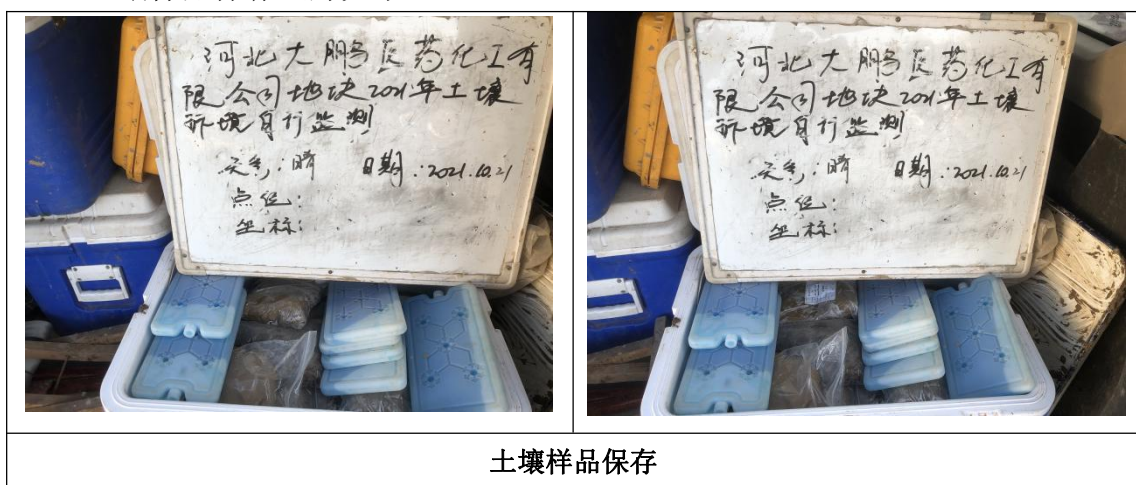 河北大鹏医药化工有
限公司地块2021年土壤
环境自行监测
天气:晴 日期:2021.10.21
点位:
坐标:
河北大鹏医药化工有
限公司地块2021年土壤
环境自行监测
天气:晴 日期:2021.10.21
点位:
坐标:
土壤样品保存